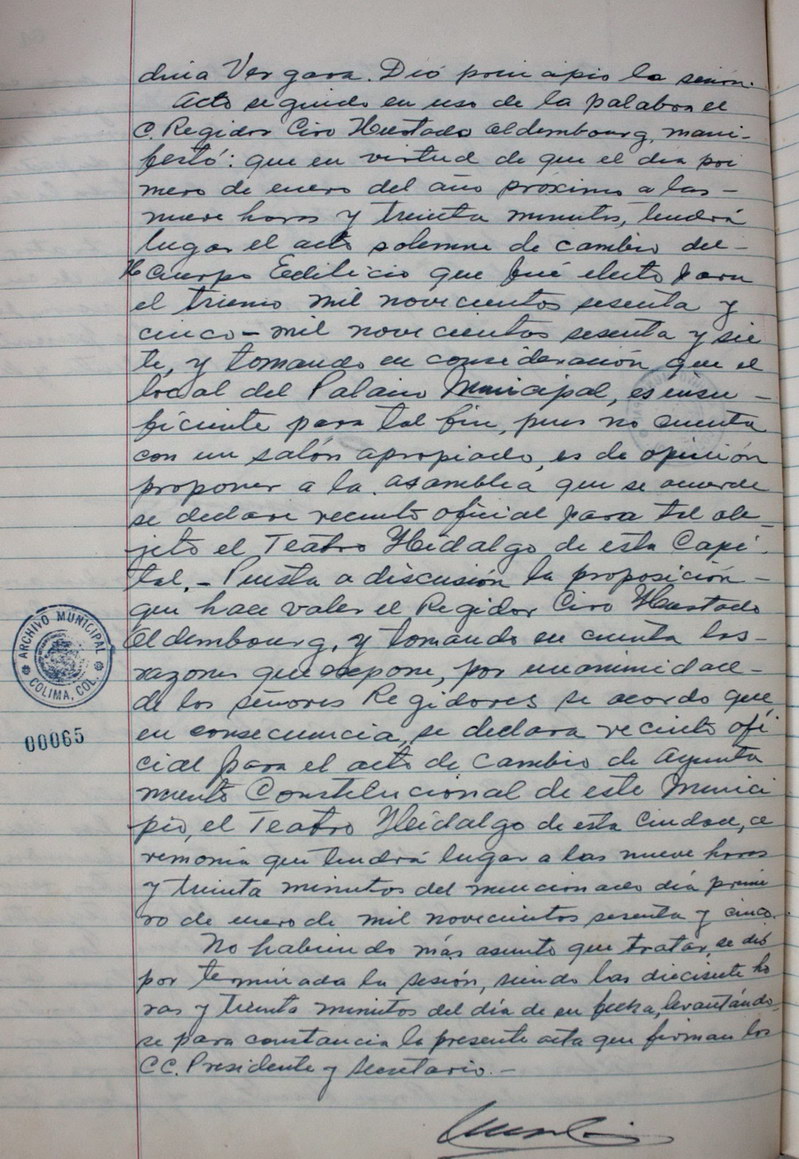 dina Vergara. Dió principio la sesión.
Acto seguido en uso de la palabra el
C. Regidor Ciro Hurtado Oldembourg, mani-
festó: que en virtud de que el día pri
mero de enero del año próximo a las-
nueve horas y treinta minutos, tendrá
lugar el acto solemne de cambio del-
H. Cuerpo Edilicio que fué electo para
el trienio mil novecientos sesenta y
cinco-mil novecientos sesenta y sie
te, y tomando en consideración que el
local del Palacio Municipal, es insu-
ficiente para tal fin, pues no cuenta
con un salón apropiado, es de opinión
proponer a la asamblea que se acuerde
se declare recinto oficial para tal ob-
jeto el Teatro Hidalgo de esta Capi-
tal.- Puesta a discusión la proposición-
que hace valer el Regidor Ciro Hurtado
Oldembourg, y tomando en cuenta las-
razones que expone, por unanimidad-
de los señores Regidores se acordo que,
en consecuencia, se declara recinto ofi
cial para el acto de cambio de Ayunta
miento Constitucional de este Munici
pio, el Teatro Hidalgo de esta ciudad, ce
remonia que tendrá lugar a las nueve horas
y treinta minutos del mencionado día prime
ro de enero de mil novecientos sesenta y cinco.
No habiendo más asunto que tratar, se dió
por terminada la sesión, siendo las diecisiete ho
ras y treinta minutos del día de su fecha, levantándo-
se para constancia la presente acta que firman los
CC. Presidente y Secretario.-
ARCHIVO MUNICIPAL
COLIMA, COL.
00065